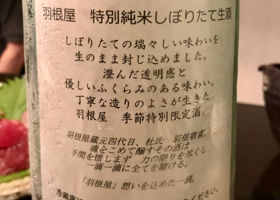 羽根屋　特別純米しぼりたて生酒
しぼりたての瑞々しい味わいを
生のまま封じ込めました。
澄んだ透明感と
優しいふくらみのある味わい。
丁寧な造りのよさが生きた
羽根屋　季節特別限定酒。
羽根屋蔵元四代目、杜氏　羽根敬喜。
魂をこめて醸すその酒は
手間を惜しまず　力の限りを尽くし
一滴一滴に全てを賭ける。
「羽根屋」想いを込めた一滴。
ください。